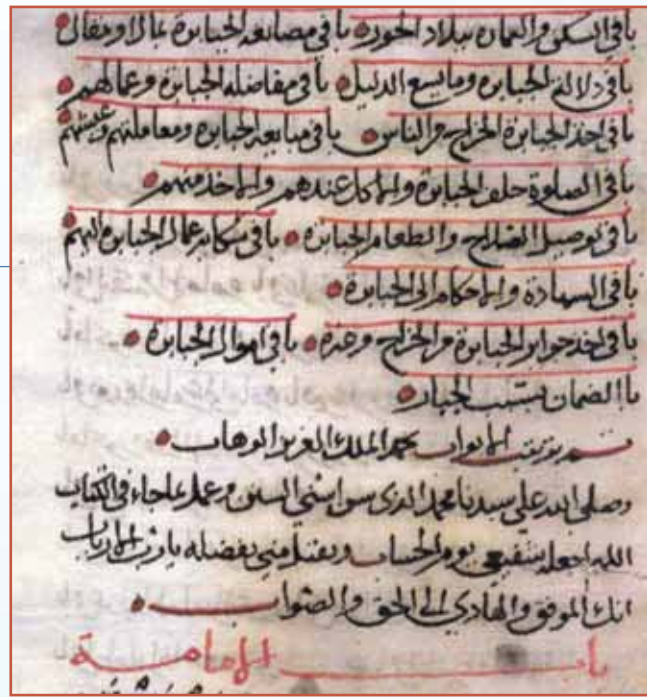 با في السكن والضمان ببلاد الجور با في مصانعه الجبابرة بمال او مقال
با في دلالة الجبابره وما يسع الدليل با في مفاضله الجبابرة وعمالهم
با في اخذ الجبابرة الخراج من الناس با في مبايعه الجبابرة ومعاملتهم
با في الصلوة خلف الجبابرة والاكل عندهم والاخذ منهم
با في توصيل السلاح والطعام الجبابره با في شكايه عمال الجبابره اليهم
با في الشهادة والاحكام الى الجبابرة
با في اخذ جوايز الجبابرة من الخراج وغيره با في اموال الجبابرة
با الضمان بسبب الجبار
تم ترتيب الابواب بحمد الملك العزيز الوهاب
وصلى الله على سيدنا محمد الذي سن اسنى السنن وعمل بما جاء في الكتاب
اللهم اجعله شفيعي يوم الحساب وتقبل مني بفضله يا رب الارباب
انك الموفق والهادي الى الحق والصواب
باب الامامة